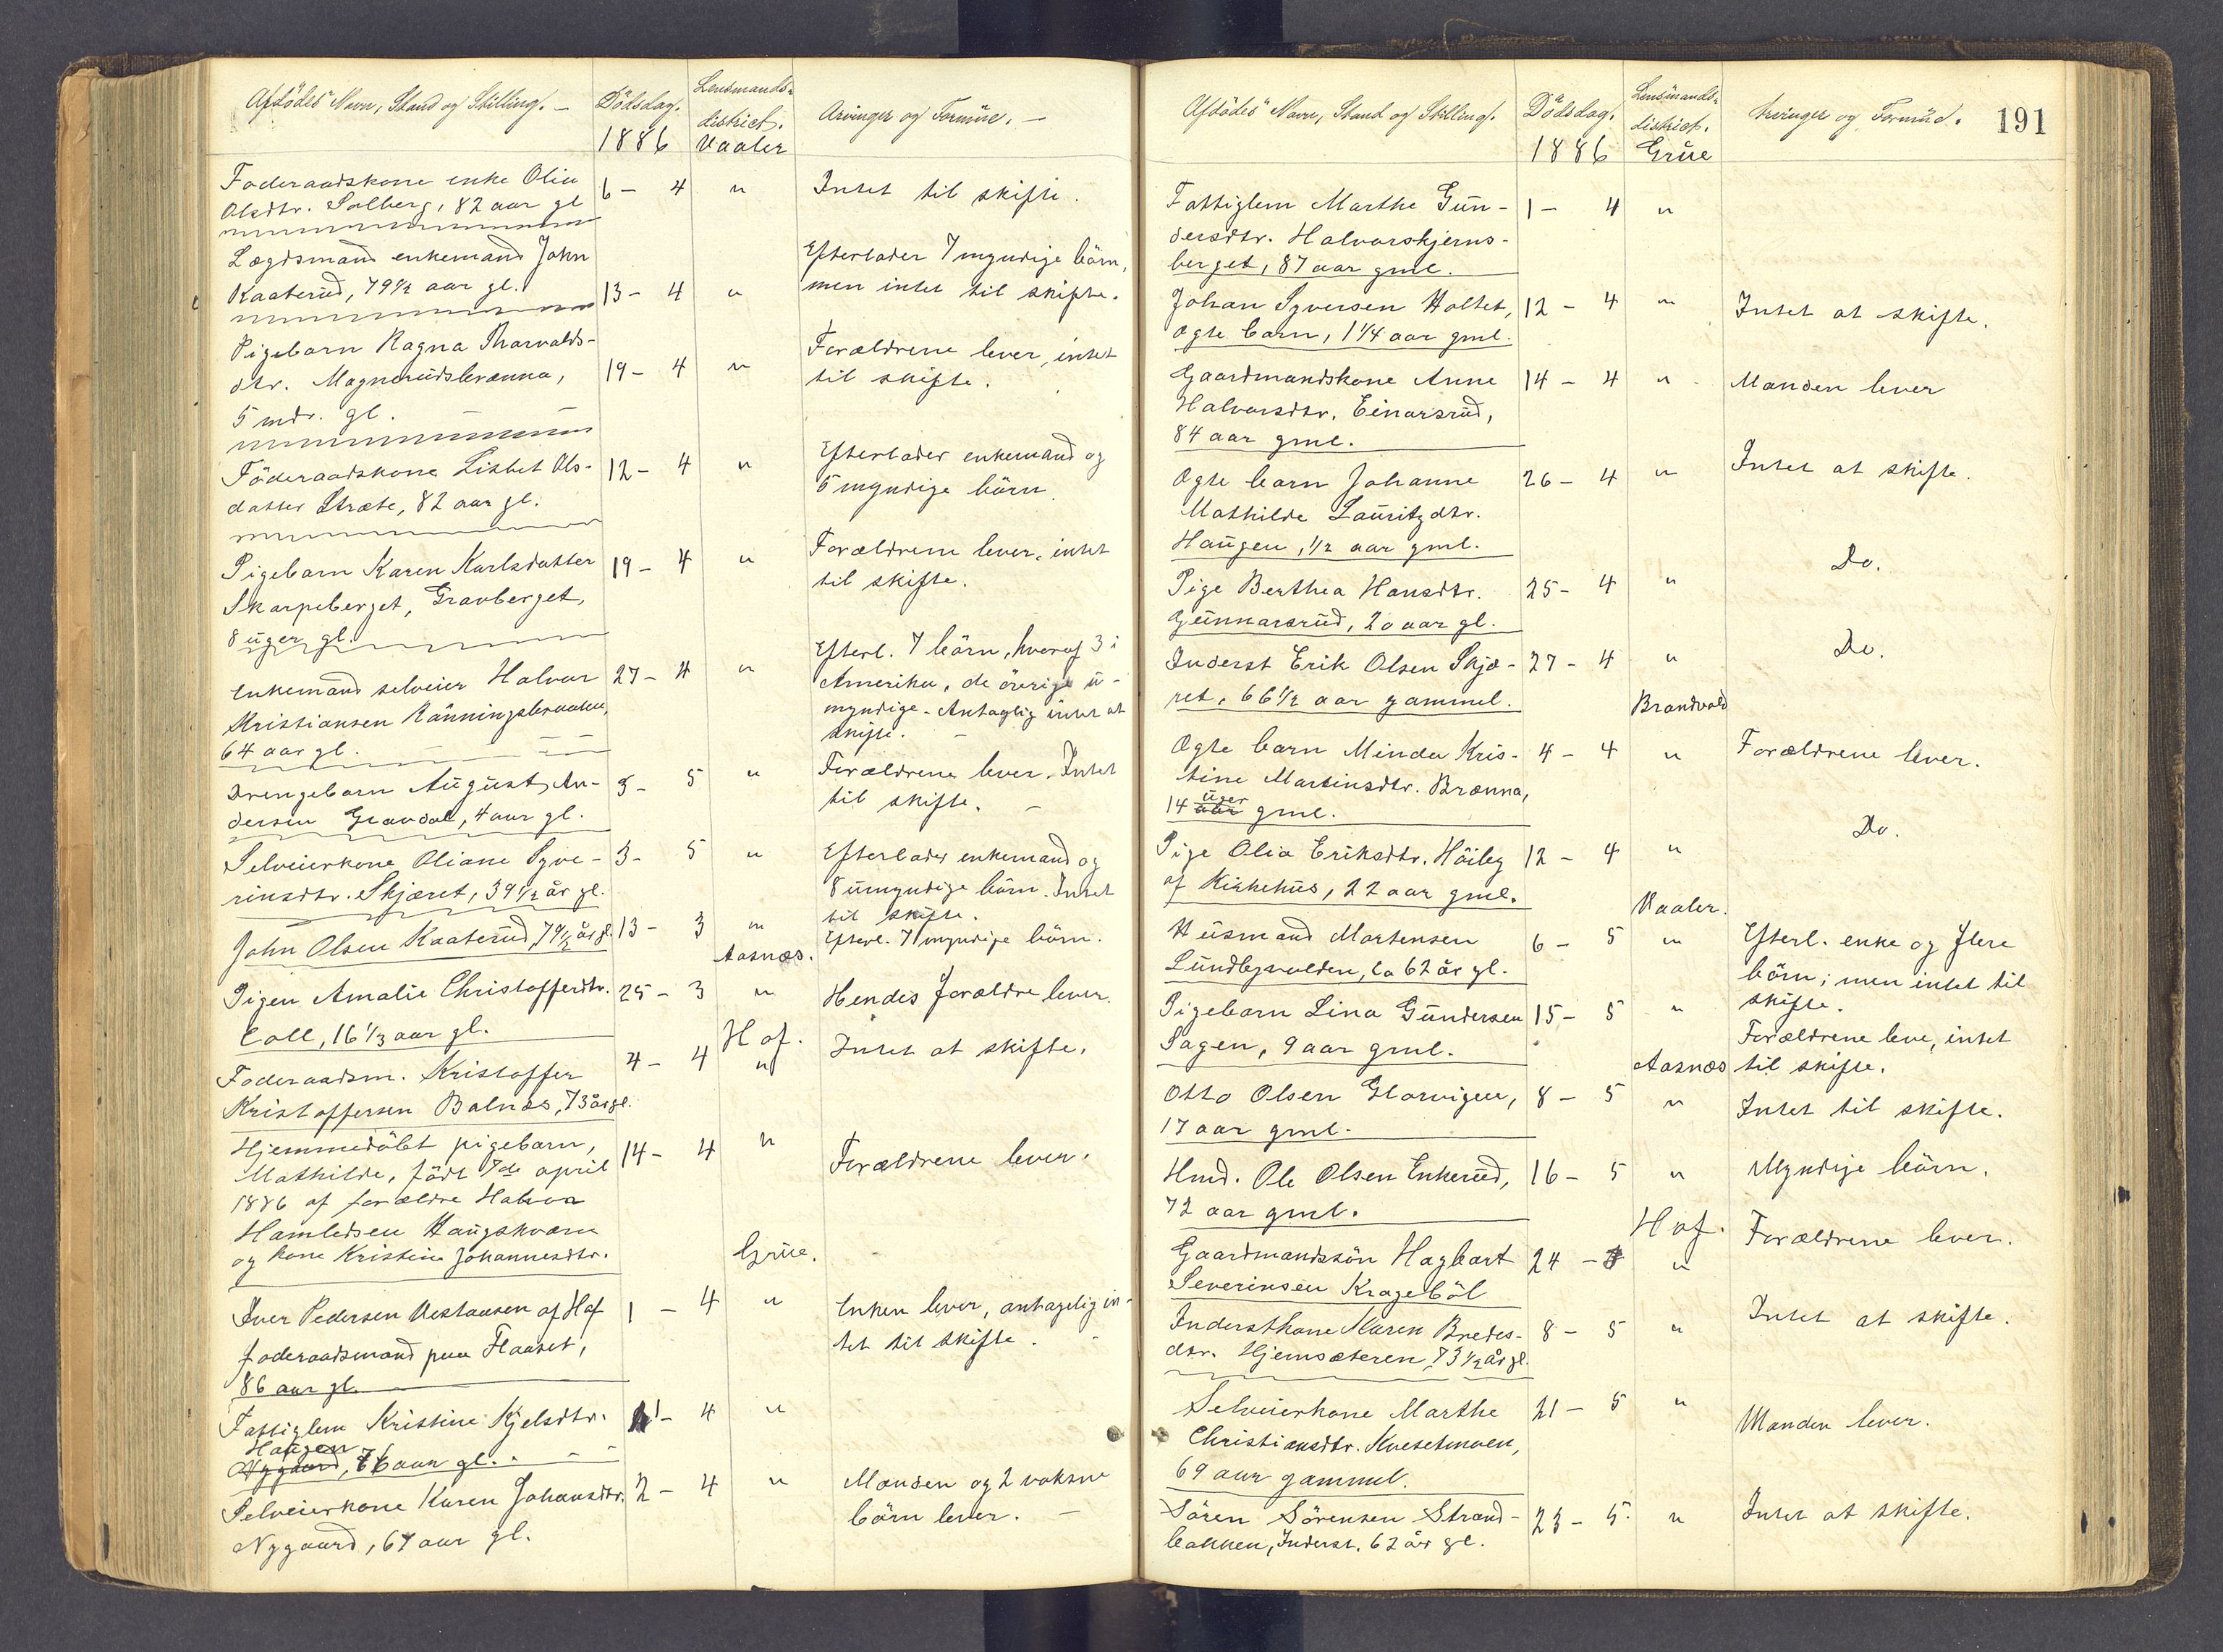 Afdödes Navn, Stand og Stilling. —
Dödsdag.
1886
Lensmands-
district.
Vaaler
Arvinger og Formue. —
Foderaadskone enke Olia
Olsdtr. Solberg, 82 aar gl
6 - 4 "
Intet til skifte.
Lægdsmand enkemand John
Kaaterud, 79 1/2 aar gl.
13 - 4 "
Efterlader 7 myndige börn,
men intet til skifte.
Pigebarn Ragna Thorvalds-
dtr. Magnerudsbrænna,
5 mdr. gl.
19 - 4 "
Forældrene lever, intet
til skifte.
Föderaadskone Lisbet Ols-
datter Stræte, 82 aar gl.
12 - 4 "
Efterlader enkemand og
5 myndige börn.
Pigebarn Karen Karlsdatter
Skarpeberget, Gravberget,
8 uger gl.
19 - 4 "
Forældrene lever, intet
til skifte.
Enkemand selveier Halvor
Kristiansen Rönningsbraaten,
64 aar gl.
27 - 4 "
Efterl. 7 börn, hvoraf 3 i
Amerika, de övrige u-
myndige - Antaglig intet at
skifte. —
Drengebarn August An-
dersen Gravdal, 4 aar gl.
3 - 5 "
Forældrene lever. Intet
til skifte. —
Selveierkone Oliane Syve-
rinsdtr. Skjæret, 39 1/2 år gl.
3 - 5 "
Efterlader enkemand og
8 umyndige börn. Intet
til skifte.
John Olsen Kaaterud, 79 1/2 år gl.
13 - 3 "
Efterl. 7 myndige börn.
Aasnæs.
Pigen Amalie Christoffersdtr.
Coll, 16 1/3 aar gl.
25 - 3 "
Hendes forældre lever.
Hof.
Foderaadsm. Kristoffer
Kristoffersen Balnæs, 73 år gl.
4 - 4 "
Intet at skifte.
Hjemmedöbt pigebarn,
Mathilde, född 7de april
1886 af forældre Halvor
Hamletsen Haugskværn
og kone Kristine Johannesdtr.
14 - 4 "
Forældrene lever.
Grue.
Iver Pedersen Nestansen af Hof
foderaadsmand paa Flaaset,
86 aar gl.
1 - 4 "
Enken lever, antagelig in-
tet til skifte. -
Fattiglem Kristine Kjelsdtr.
Haugen
Nygaard, 76 aar gl.
1 - 4 "
Selveierkone Karen Johansdtr.
Nygaard, 67 aar gl.
2 - 4 "
Manden og 2 voksne
börn lever. —
Afdödes Navn, Stand og Stilling.
Dödsdag.
1886
Lensmands-
district.
Grue
Arvinger og Formue.
191
Fattiglem Marthe Gun-
dersdtr. Halvorskjerns-
berget, 87 aar gml.
1 - 4 "
Johan Syversen Holtet,
ægte barn, 1 1/4 aar gml.
12 - 4 "
Intet at skifte.
Gaardmandskone Anne
Halvorsdtr. Einarsrud,
84 aar gml.
14 - 4 "
Manden lever
Ægte barn Johanne
Mathilde Lauritzdtr.
Haugen, 1/2 aar gml.
26 - 4 "
Intet at skifte.
Pige Berthea Hansdtr.
Gunnarsrud, 20 aar gl.
25 - 4 "
Do.
Inderst Erik Olsen Skjæ-
ret, 66 1/2 aar gammel.
27 - 4 "
Do.
Brandvold
Ægte barn Minda Kris-
tine Martinsdtr. Brænna,
14 aar uger gml.
4 - 4 "
Forældrene lever.
Pige Olia Eriksdtr. Höiby
af Kirkehus, 22 aar gml.
12 - 4 "
Do.
Vaaler.
Husmand Mortensen
Lundbyvolden, ca 62 år gl.
6 - 5 "
Efterl. enke og flere
börn; men intet til
skifte.
Pigebarn Lina Gundersen
Sagen, 9 aar gml.
15 - 5 "
Forældrene leve, intet
til skifte.
Aasnæs
Otto Olsen Glorvigen,
17 aar gml.
8 - 5 "
Intet til skifte.
Hmd. Ole Olsen Enkerud,
72 aar gml.
16 - 5 "
Myndige börn.
Hof.
Gaardmandssön Hagbart
Severinsen Krageböl
24 - "
Forældrene lever.
Indersthone Maren Bredes-
dtr. Hjemsæteren, 73 1/2 år gl.
8 - 5 "
Intet at skifte.
Selveierkone Marthe
Christiansdtr. Kvesetmoen,
69 aar gammel.
21 - 5 "
Manden lever.
Sören Sörensen Strand-
bakken, Inderst. 62 år gl.
23 - 5 "
Intet at skifte.